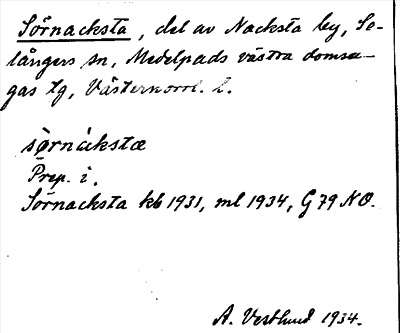 Sörnacksta, del av Nacksta by, Se-
långers sn, Medelpads västra domsa-
gas tg, Västernorrl. l.
sørnakstæ
Prep. i.
Sörnacksta kb 1931, ml 1934, G 79 NO.
A. Vestlund 1934.